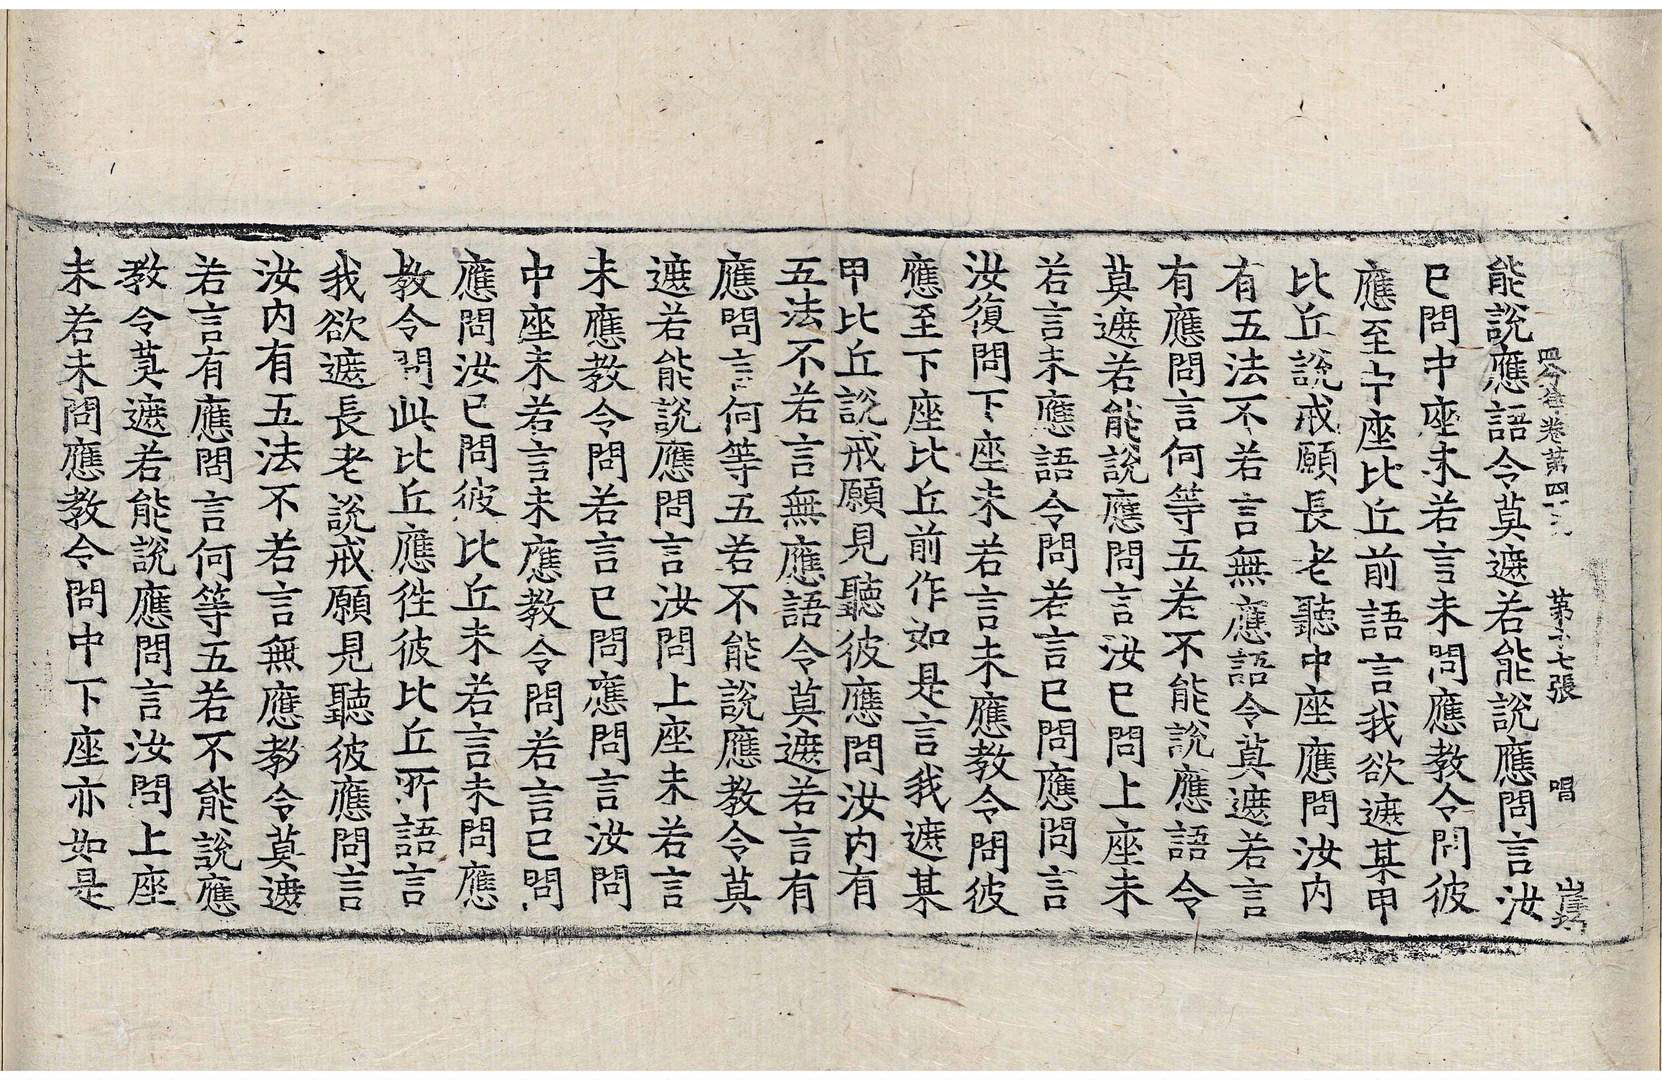 卷第四十 第十七張 唱
能說應語令莫遮若能說應問言汝
已問中座未若言未問應教令問彼
應至中座比丘前語言我欲遮某甲
比丘說戒願長老聽中座應問汝内
有五法不若言無應語令莫遮若言
有應問言何等五若不能說應語令
莫遮若能說應問言汝已問上座未
若言未應語令問若言已問應問言
汝復問下座未若言未應教令問彼
應至下座比丘前作如是言我遮某
甲比丘說戒願見聽彼應問汝内有
五法不若言無應語令莫遮若言有
應問言何等五若不能說應教令莫
遮若能說應問言汝問上座未若言
未應教令問若言已問應問言汝問
中座未若言未應教令問若言已問
應問汝已問彼比丘未若言未問應
教令問此比丘應往彼比丘所語言
我欲遮長老說戒願見聽彼應問言
汝内有五法不若言無應教令莫遮
若言有應問言何等五若不能說應
教令莫遮若能說應問言汝問上座
未若未問應教令問中下座亦如是